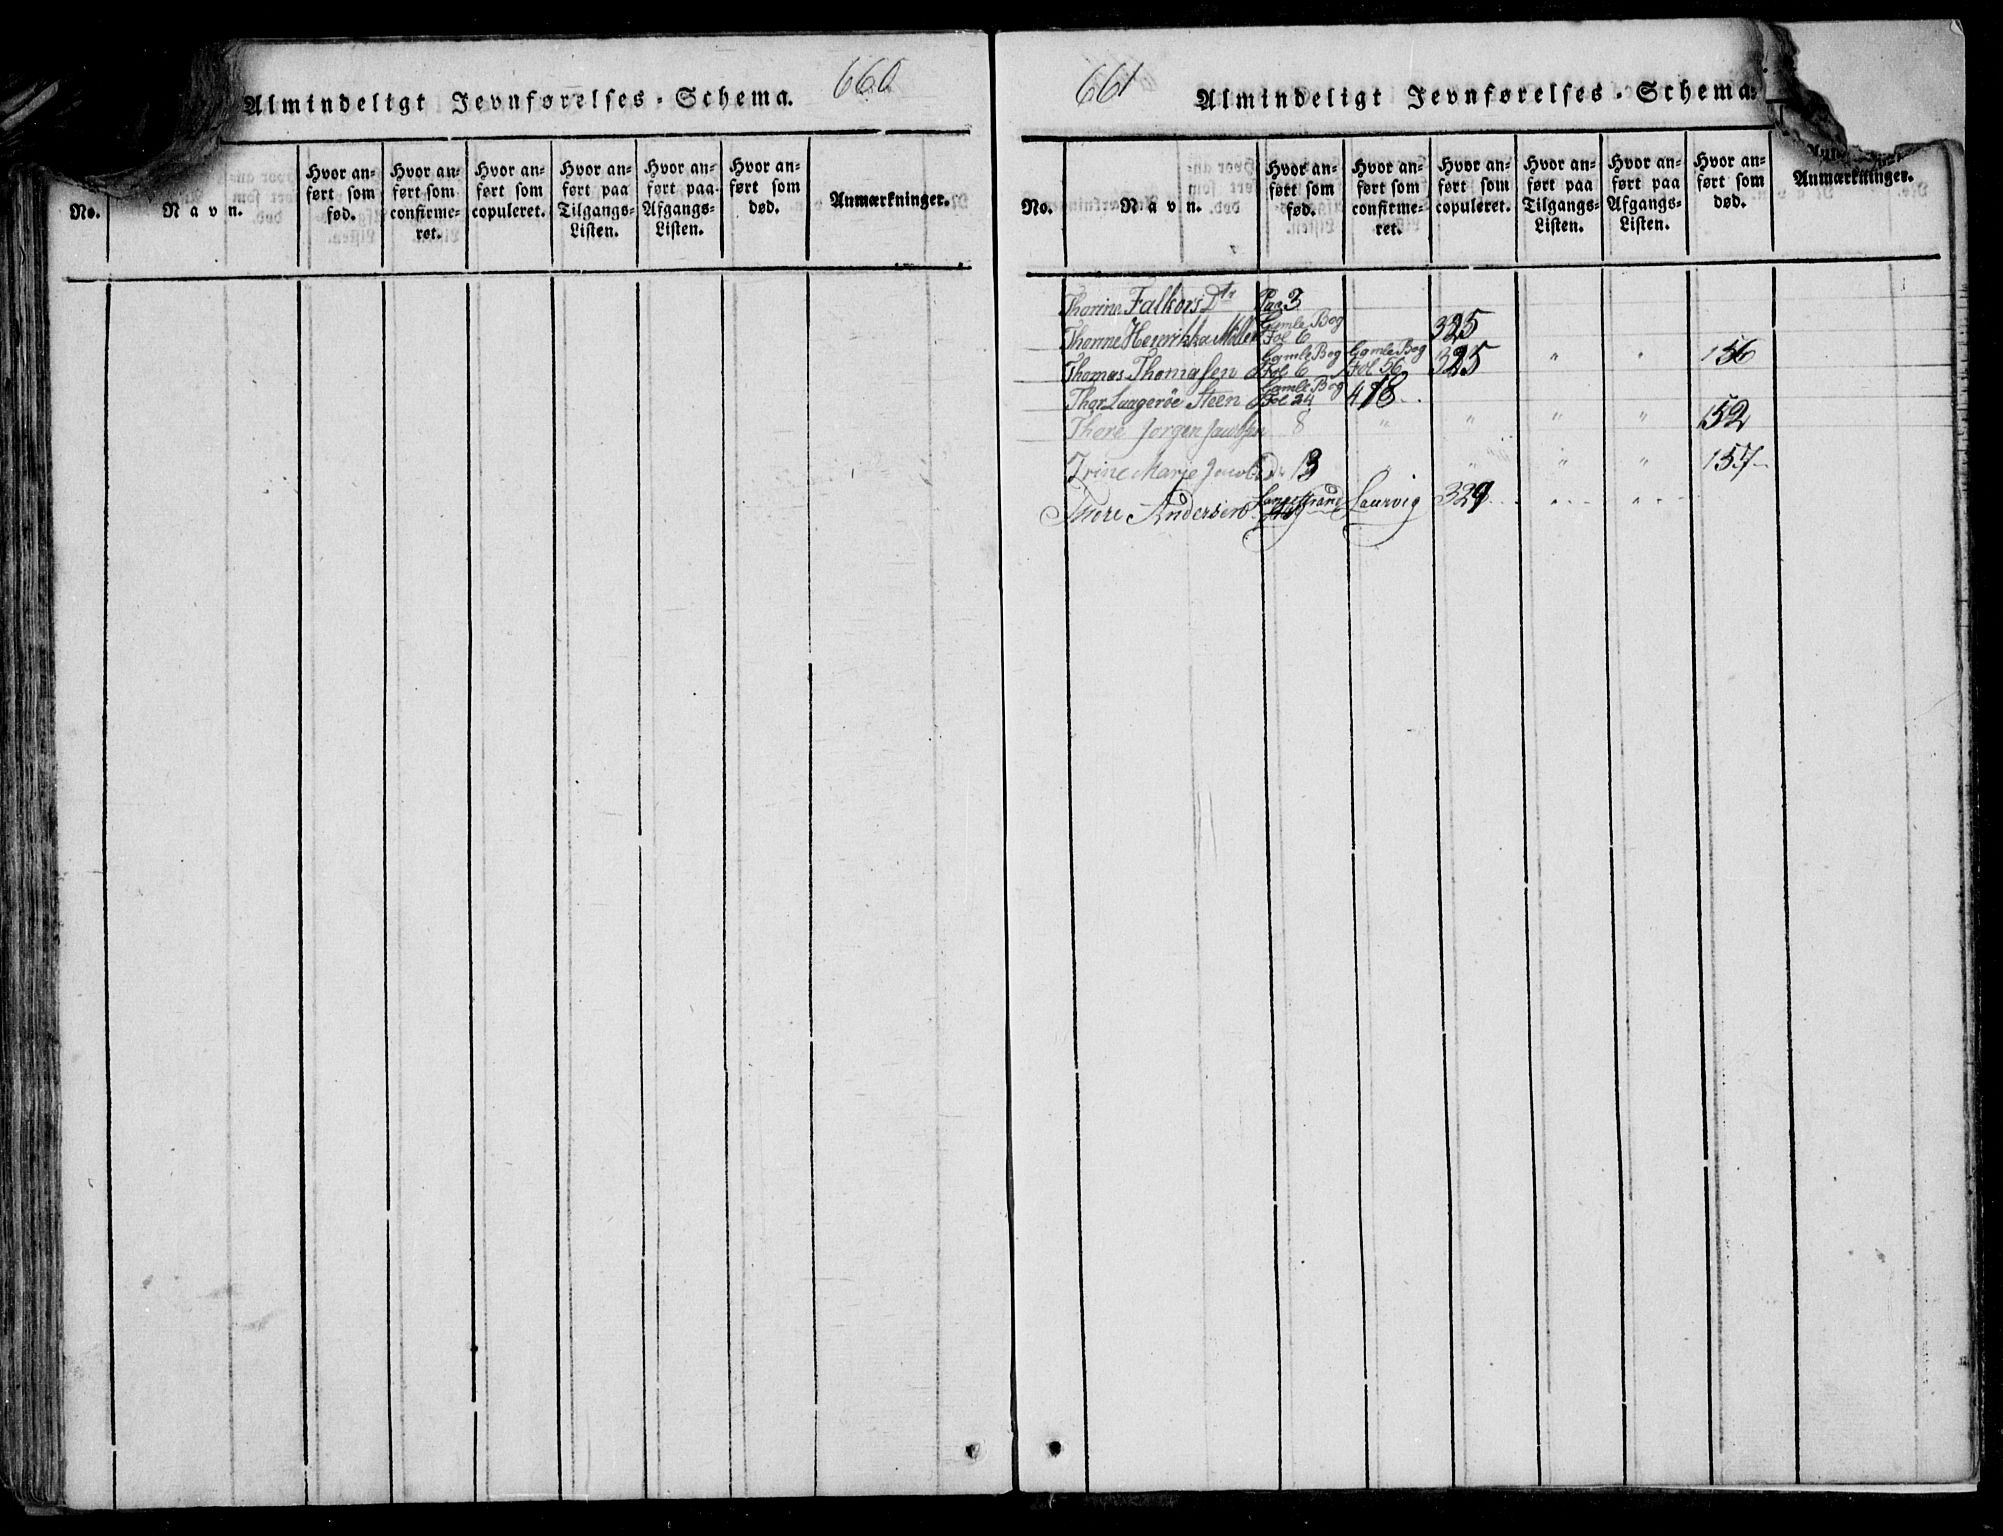 Almindeligt Jevnførelses-Schema. 660
No. Navn. Hvor anført som fød. Hvor anført som confirmeret. Hvor anført som copuleret. Hvor anført paa Tilgangs-Listen. Hvor anført paa Afgangs-Listen. Hvor anført som død. Anmærkninger.
661 Almindeligt Jevnførelses-Schema.
No. Navn. Hvor anført som fød. Hvor anført som confirmeret. Hvor anført som copuleret. Hvor anført paa Tilgangs-Listen. Hvor anført paa Afgangs-Listen. Hvor anført som død. Anmærkninger.
Thorine Falkors Dtr Pag 3
Thorine Henrikka Möller Gamle Bog Fol 6 325
Thomas Thomassen Gamle Bog Fol 6 Gamle Bog Fol 56 325 " " 156
Thor Laageröe Steen Gamle Bog Fol 24 418
Thore Jørgen Jacobsen 8 " " " " 152
Trine Marie Jacobsd. 13 " " " " 157
Thore Andersen Langestrand Laurvig 329 " "